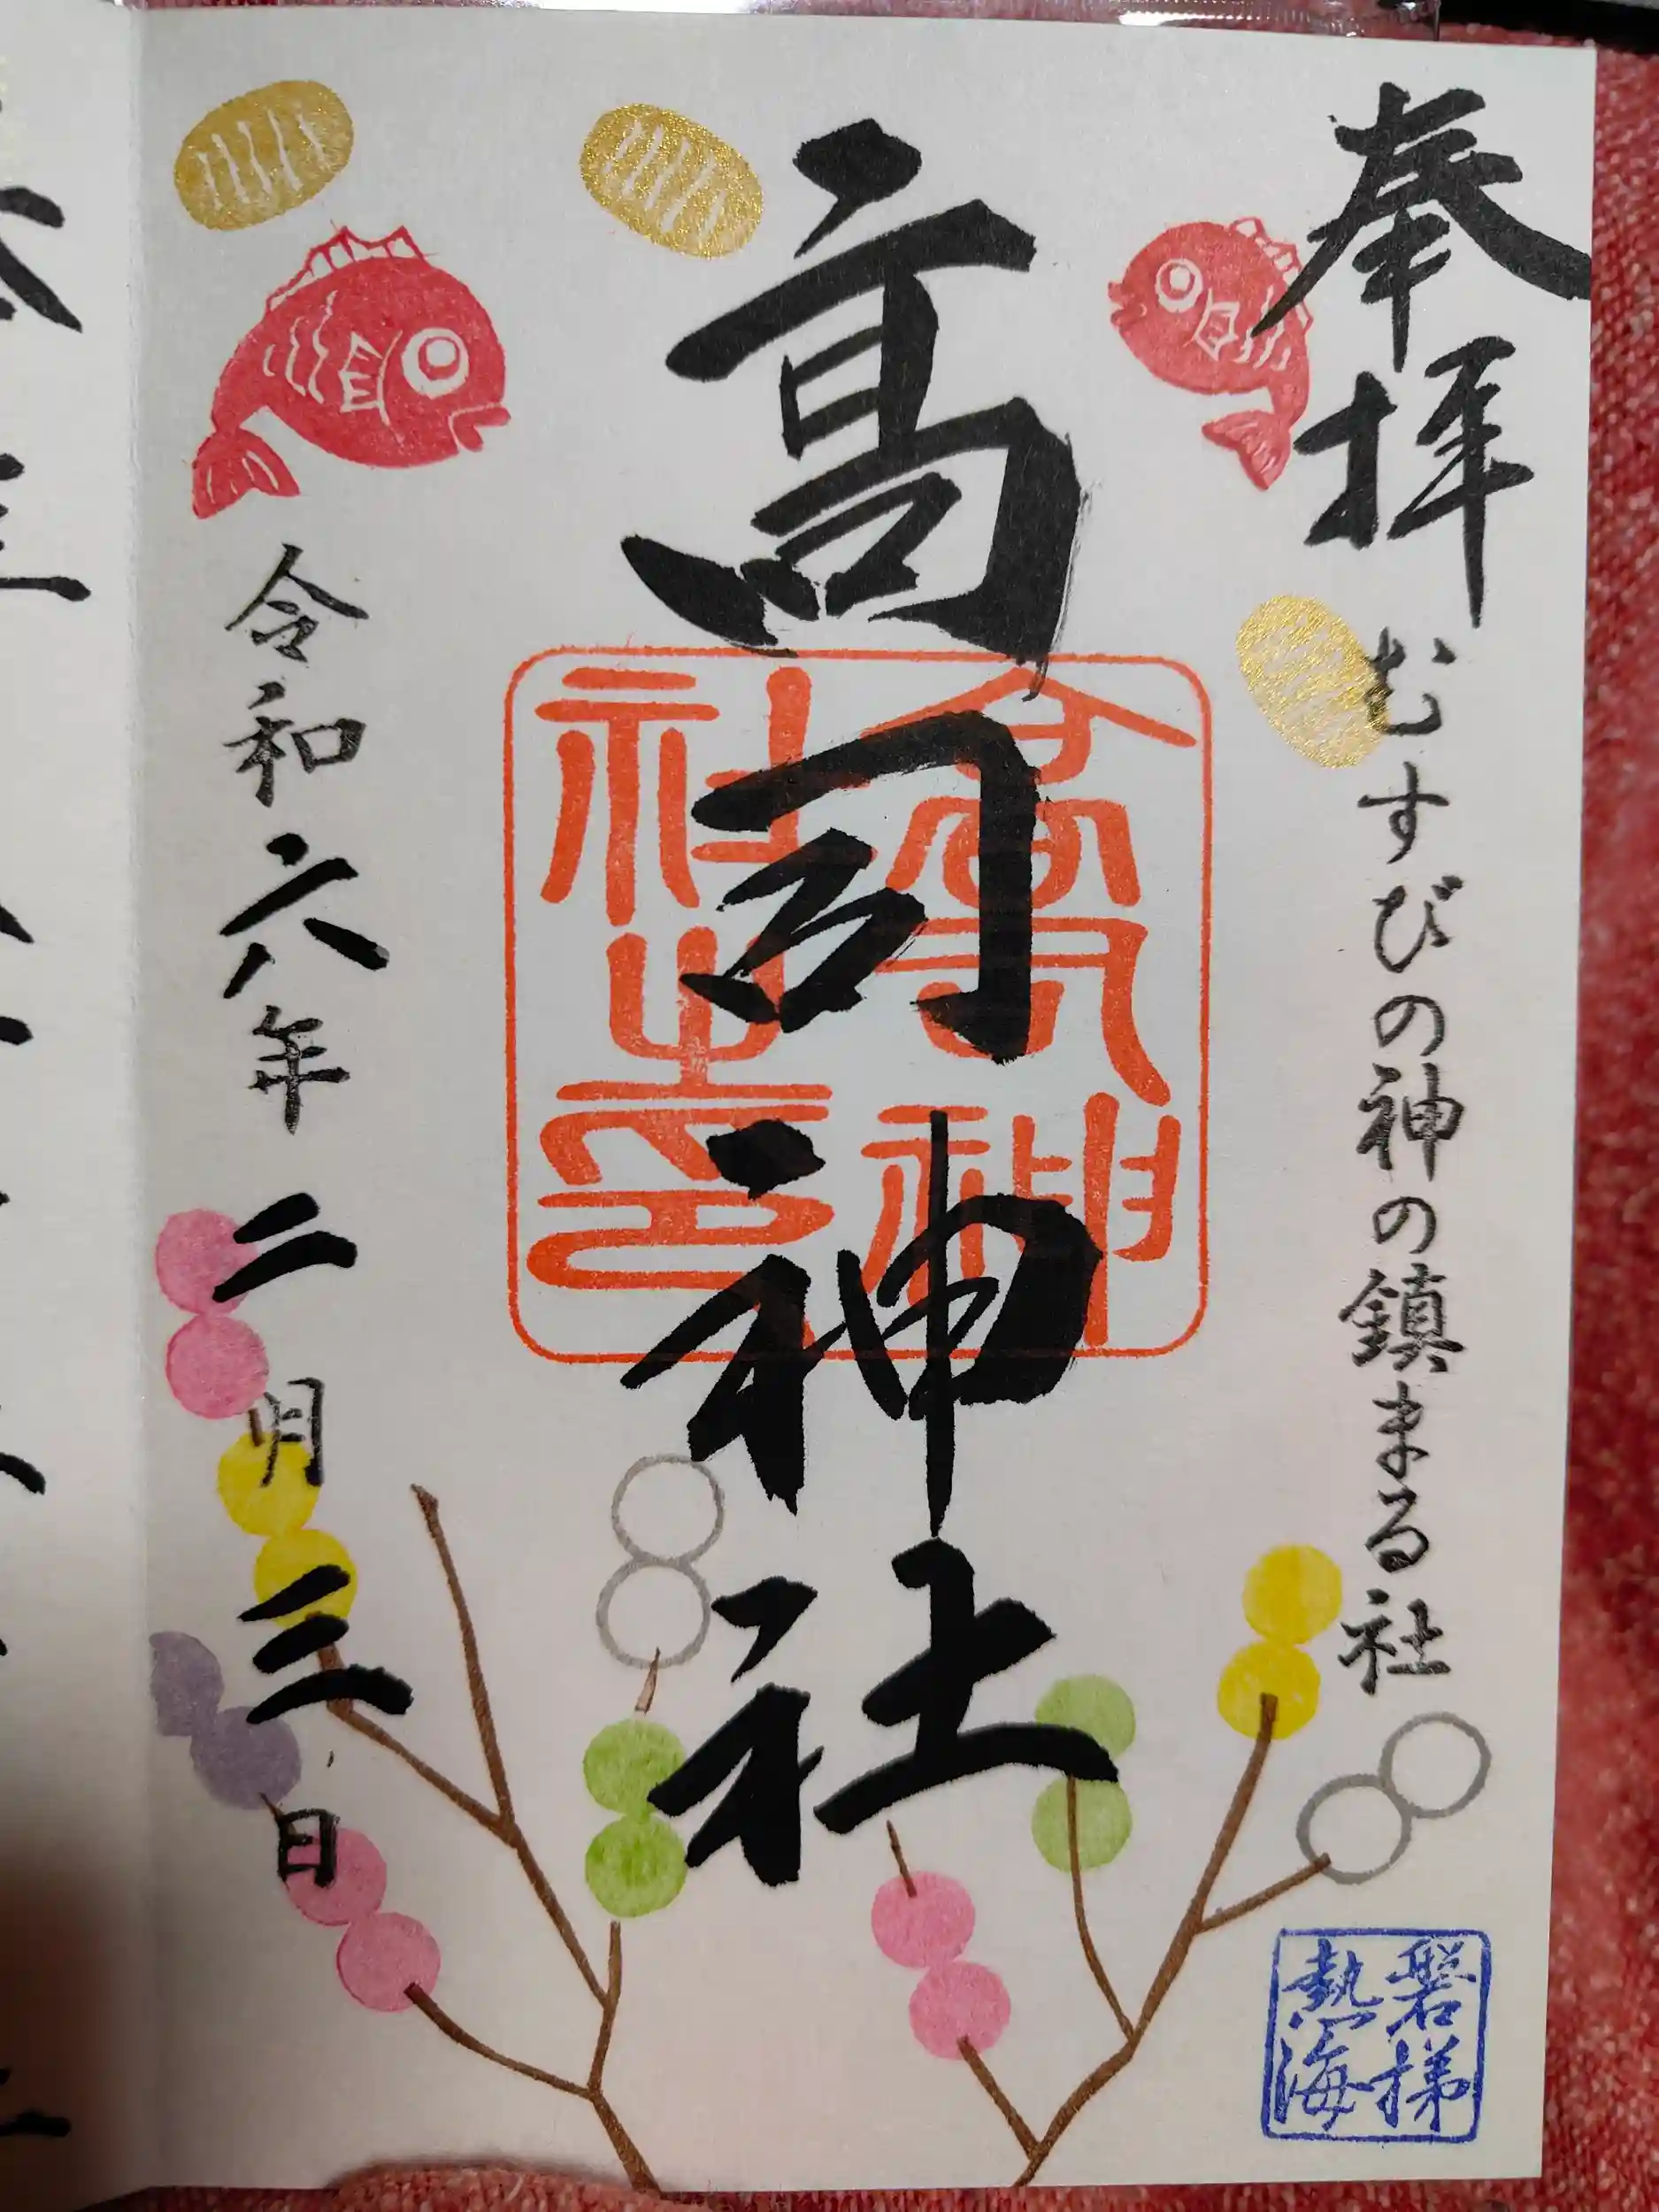 奉拝
むすびの神の鎮まる社
高司神社
高司神
社之印
令和六年二月三日
磐梯
熱海